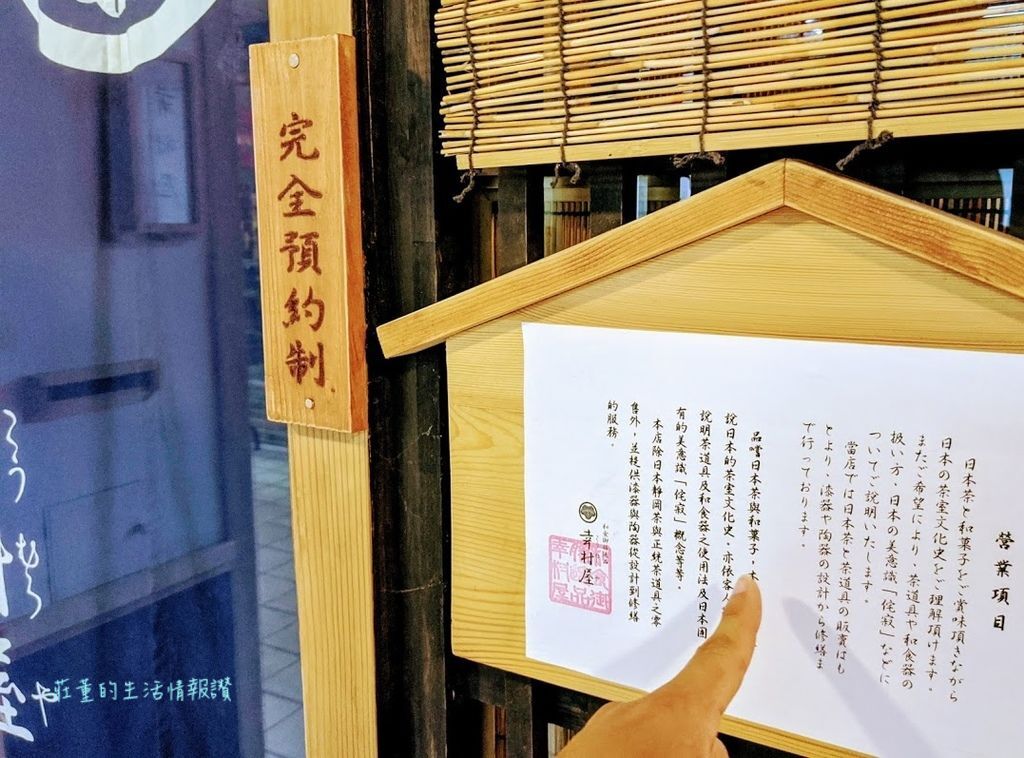 完全預約制
営業項目
日本茶と和菓子をご賞味頂きながら
日本の茶室文化史をご理解頂けます。
またご希望により、茶道具や和食器の
扱い方・日本の美意識「侘寂」などに
ついてご説明いたします。
当店では日本茶と茶道具の販賣はも
とより、漆器や陶器の設計から修繕ま
で行っております。
品嚐日本茶與和菓子，
說日本的茶室文化史，亦依客人
說明茶道具及和食器之使用法及日本固
有的美意識「侘寂」概念等等。
本店除日本靜岡茶與正統茶道具之零
售外，並提供漆器與陶器從設計到修繕
的服務。
幸村屋
莊董的生活情報讚